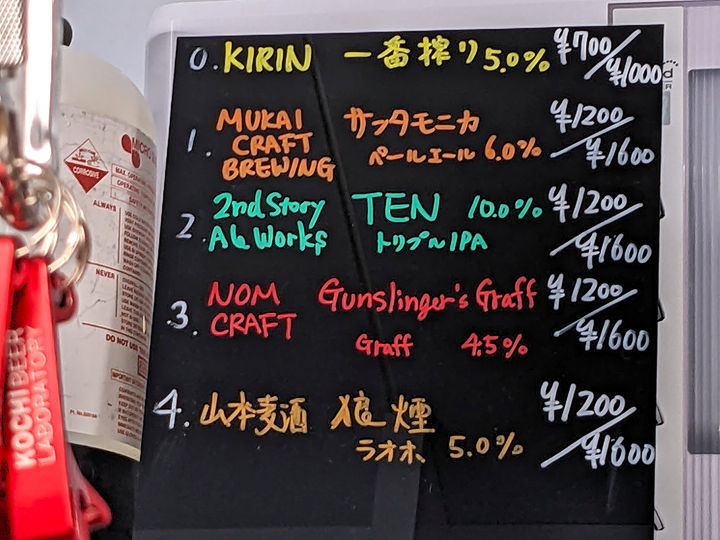 0. KIRIN 一番搾り 5.0% ¥700/¥1000
1. MUKAI CRAFT BREWING サンタモニカ ¥1200/¥1600
ペールエール 6.0%
2. 2nd Story Ale Works TEN 10.0% ¥1200/¥1600
トリプルIPA
3. NOM CRAFT Gunslinger's Graff ¥1200/¥1600
Graff 4.5%
4. 山本麦酒 狼煙 ¥1200/¥1600
ラオホ 5.0%
KOCHI BEER
LABORATORY
MICRO
CORROSIVE
ALWAYS
NEVER
DO NOT